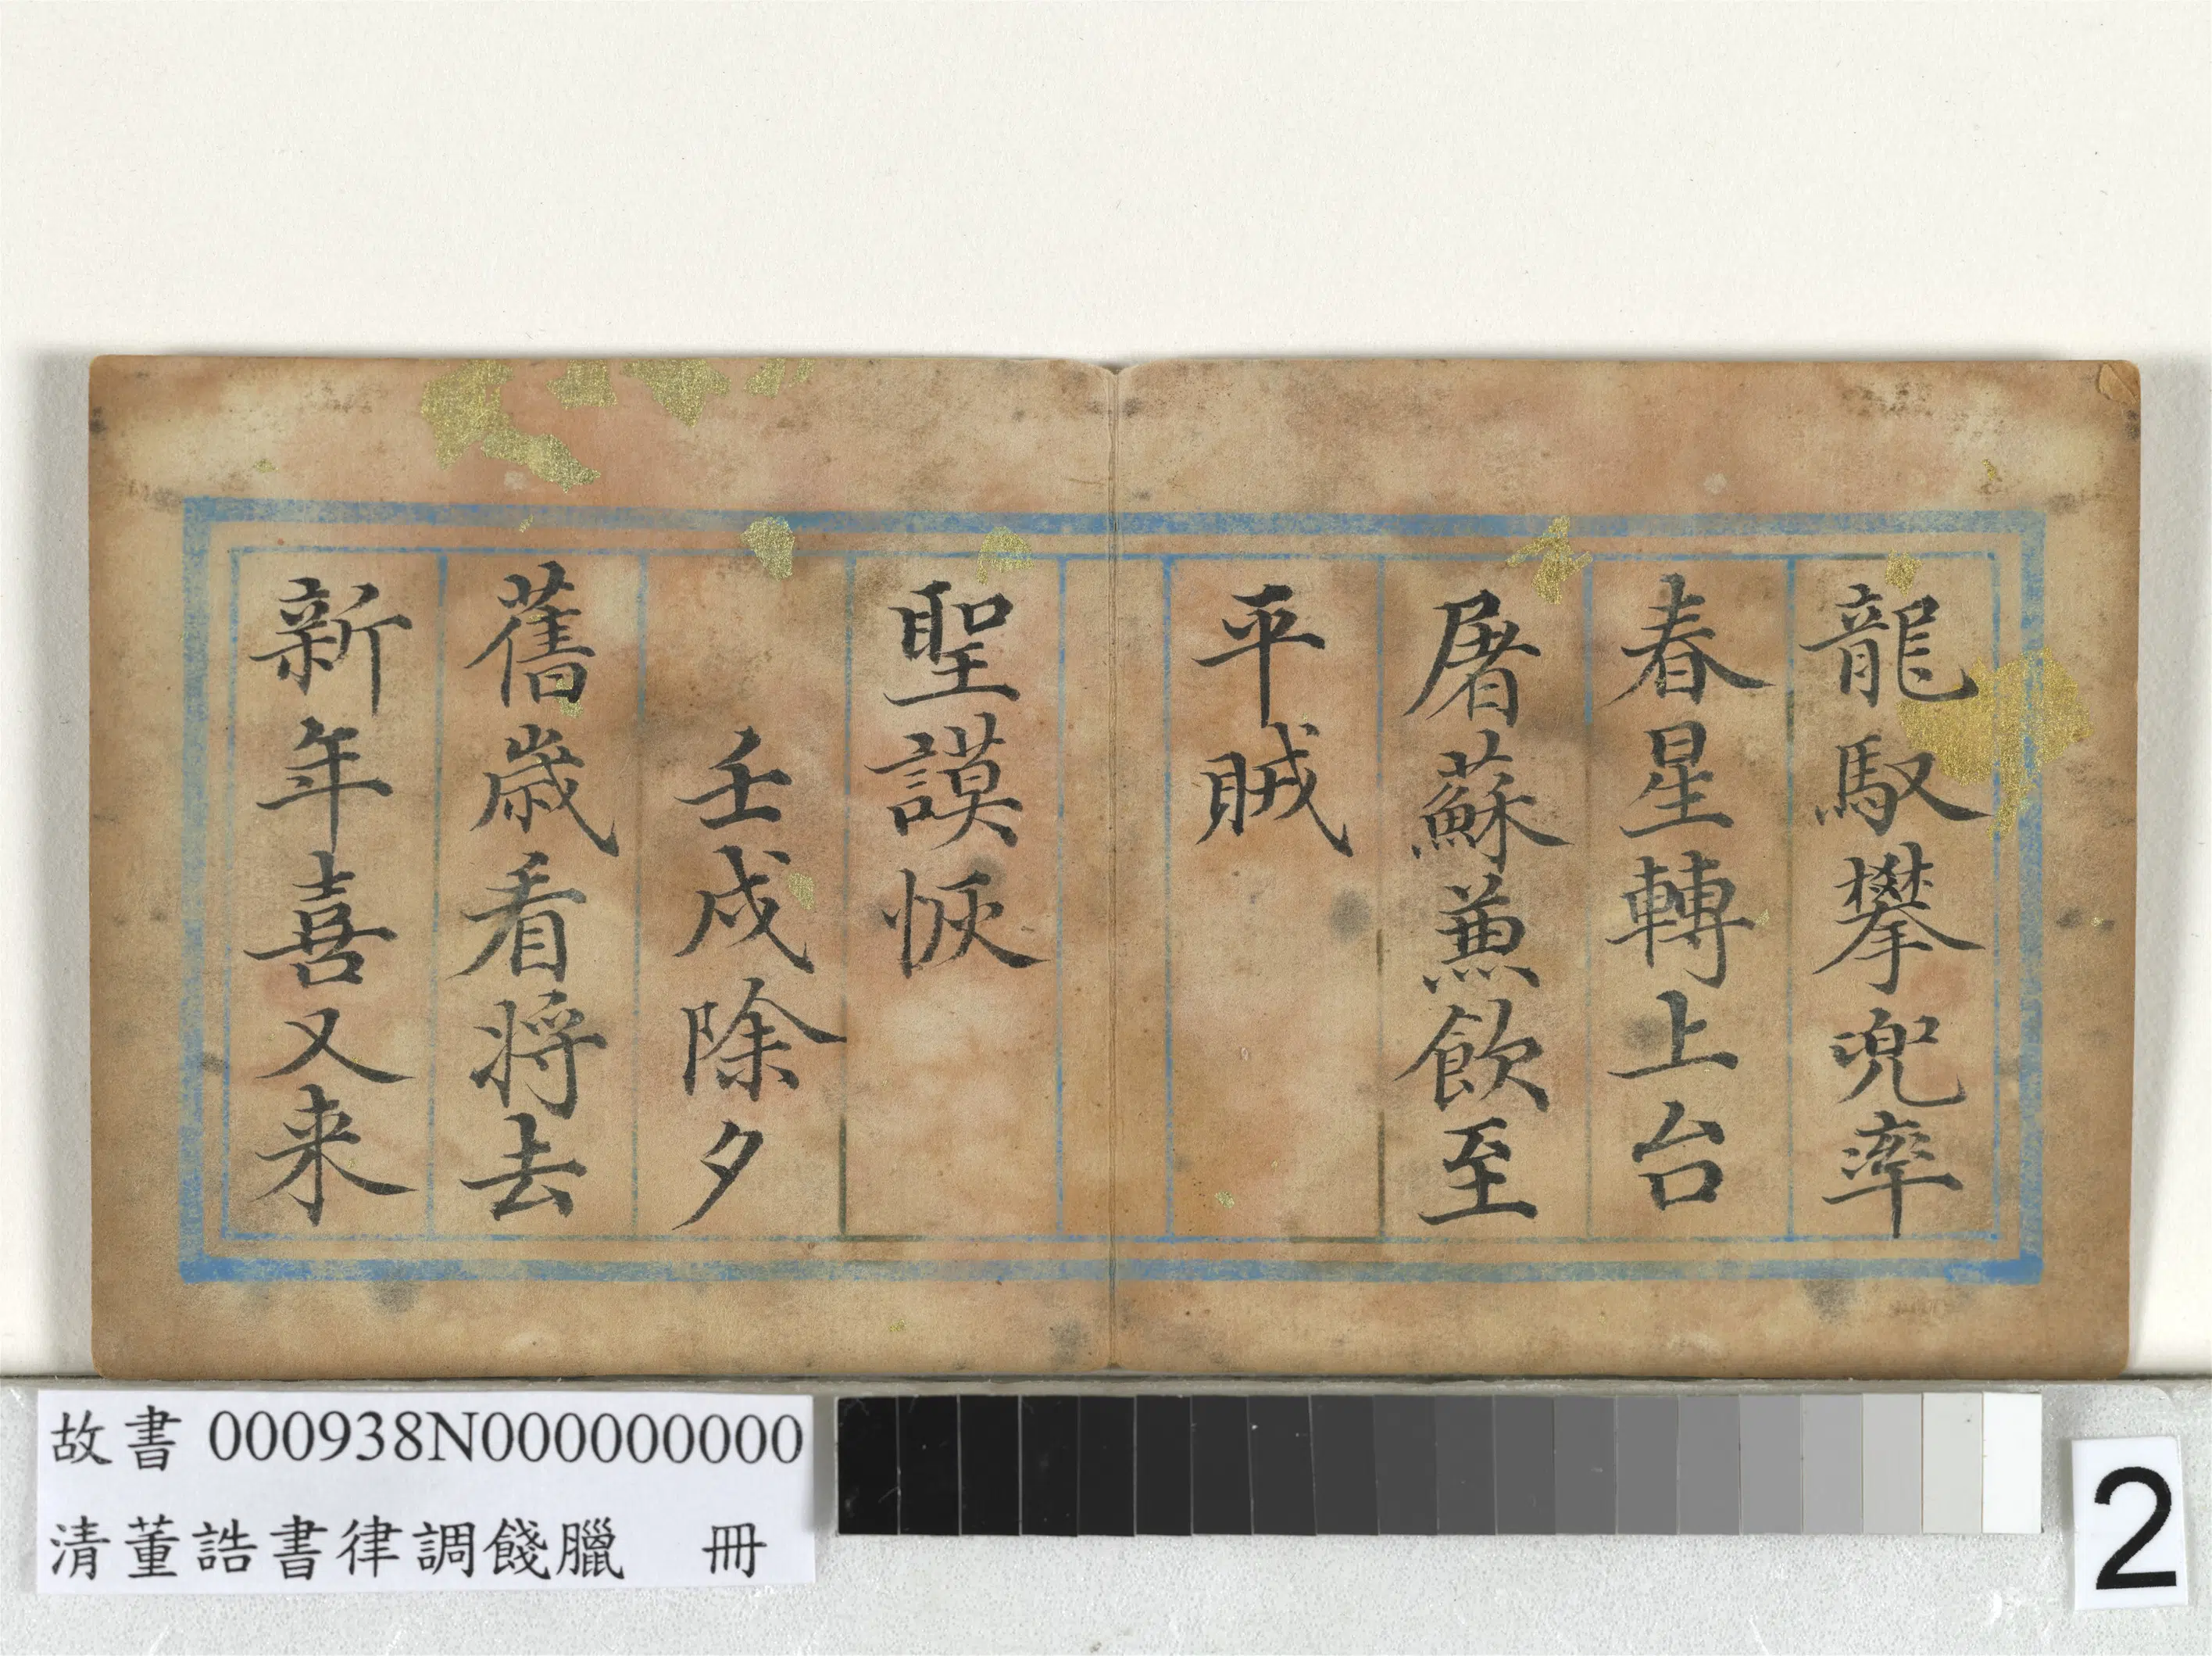 龍馭攀兜率
春星轉上台
屠蘇蕙飲至
平賊
聖謨恢
壬戌除夕
舊歲看將去
新年喜又来
故書 000938N000000000
清董誥書律調餞臘 冊
2